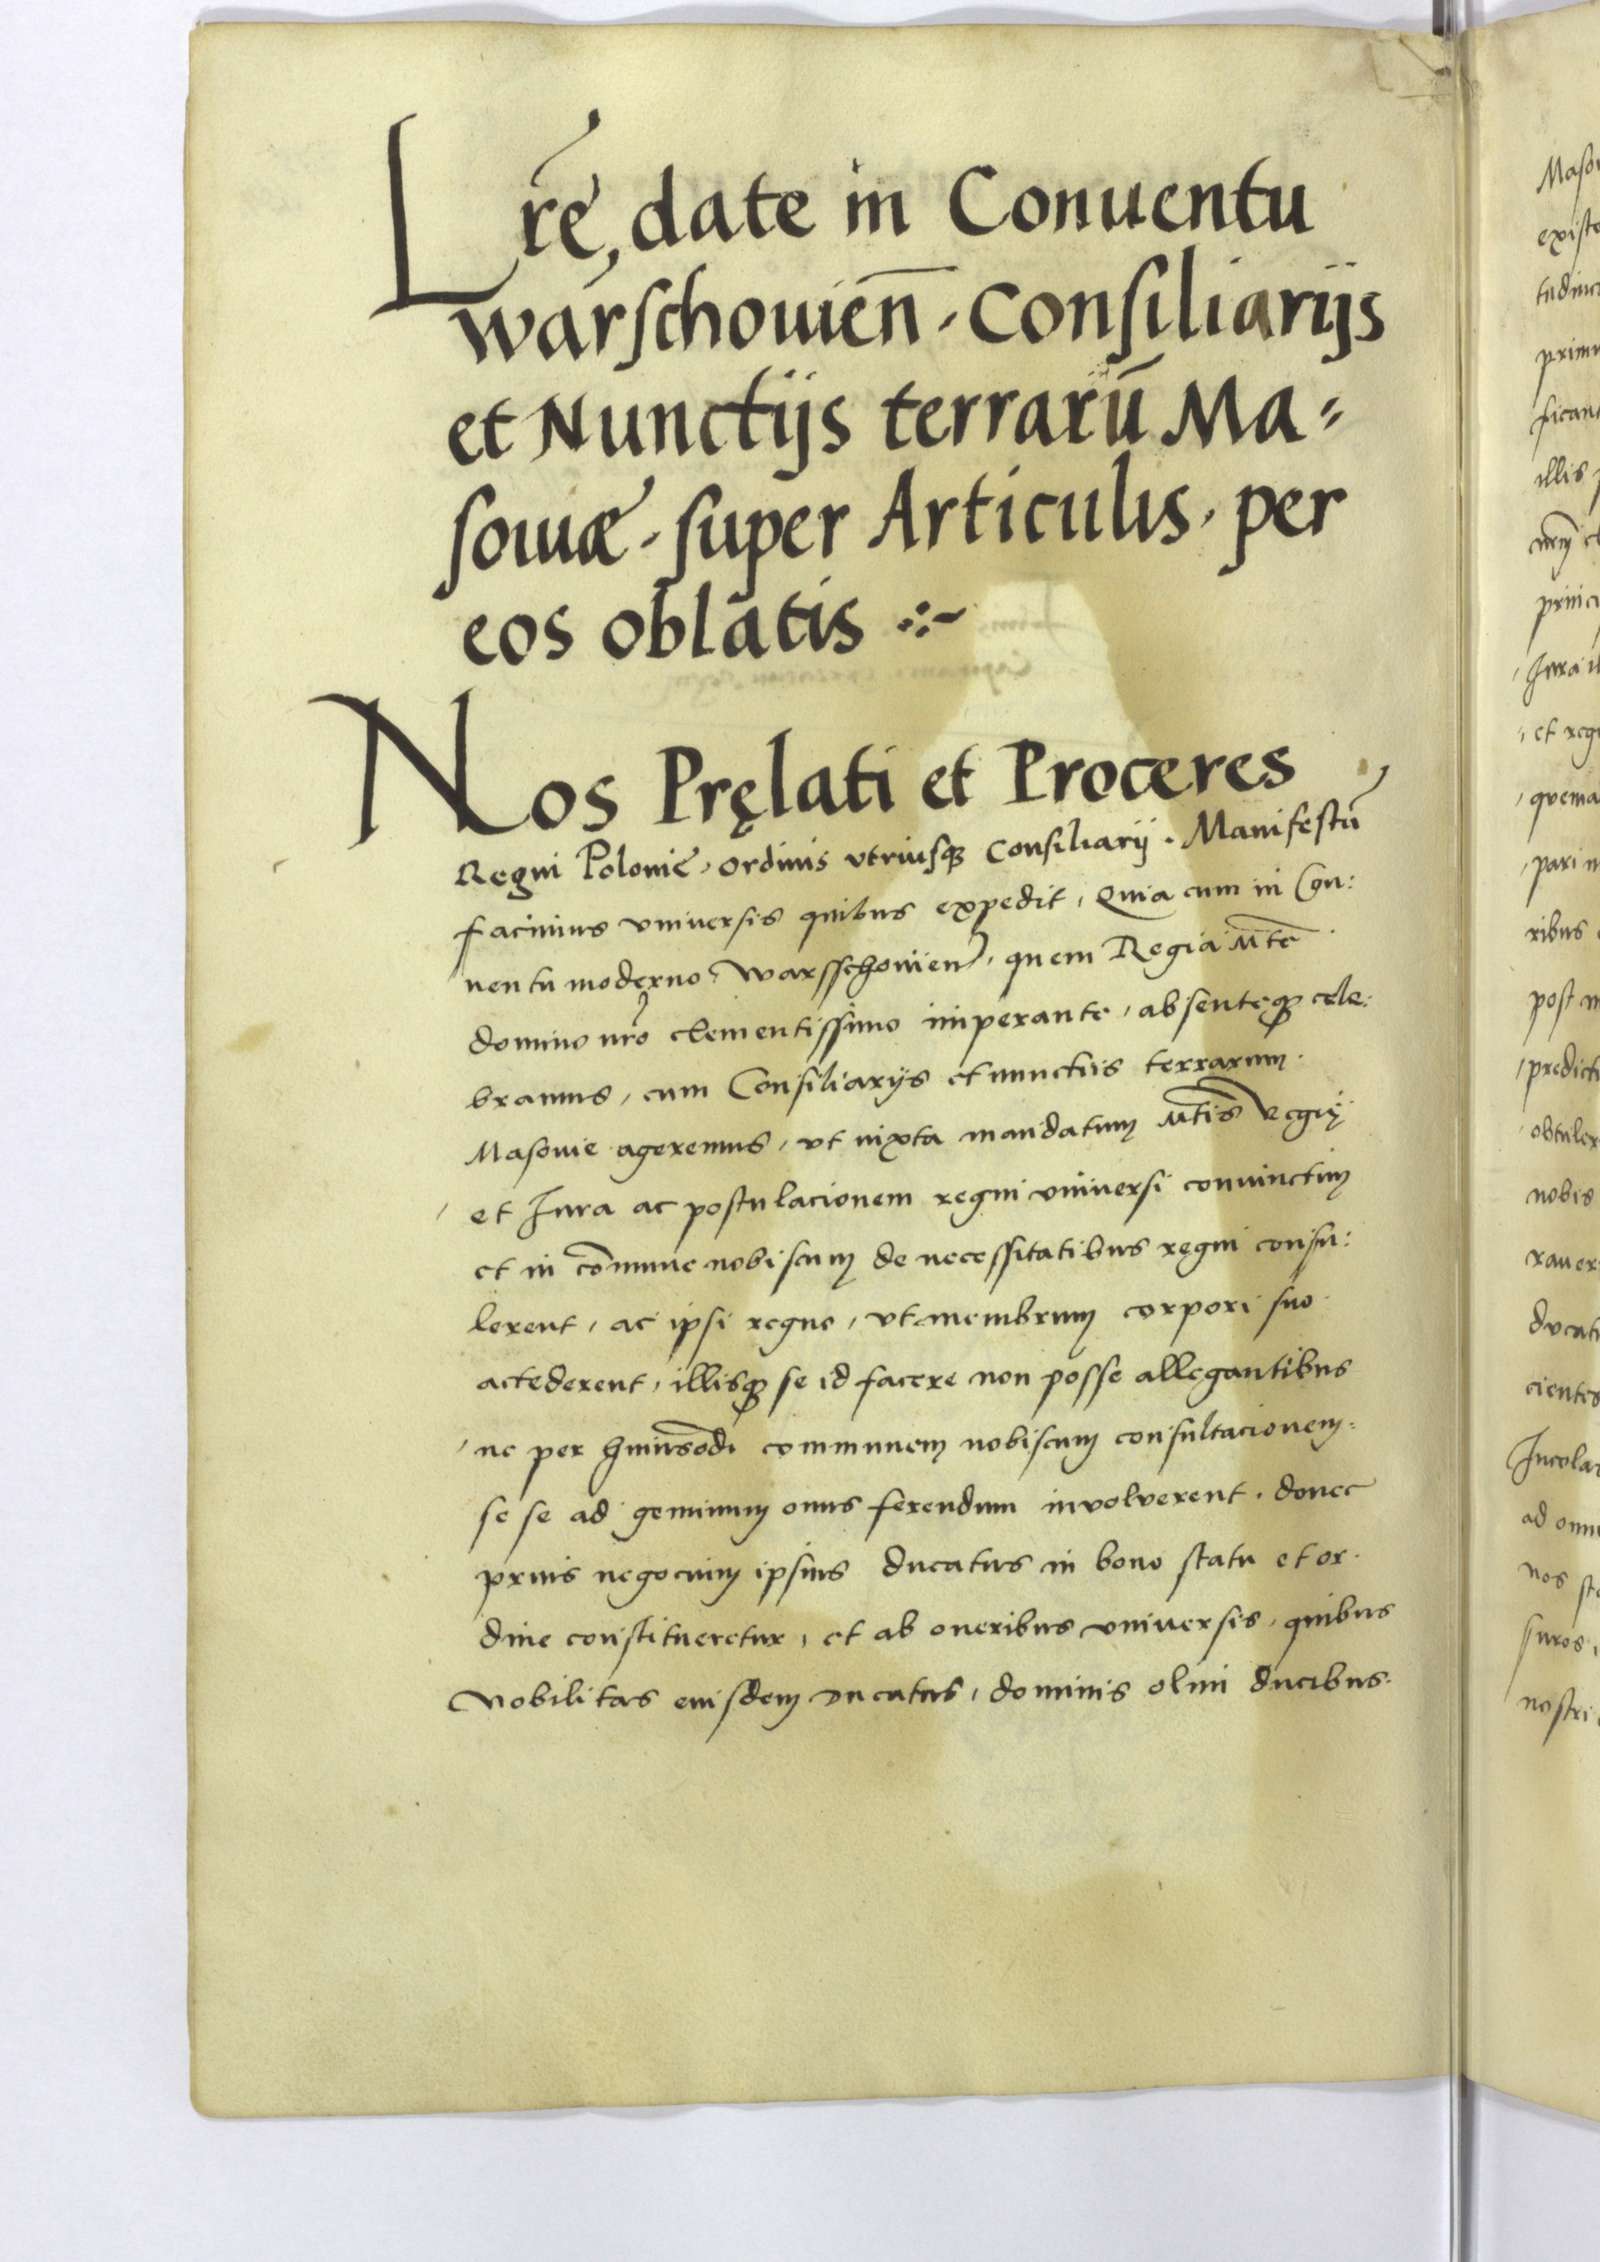 Lre, date in Conuentu
warschouien̄ · Consiliarijs
et Nunctijs terrarū Ma=
souiæ · super Articulis · per
eos oblatis
Nos Pręlati et Proceres
Regni Polonię, ordinis vtriusq3 Consiliarij · Manifestū
facimus vniuersis quibus expedit, Quia cum in Con:
uentu moderno Warsschouien, quem Regia Mte
domino nrō clementissimo imperante, absenteq3 cele:
bramus, cum Consiliarijs et nunctiis terrarum ·
Masouie ageremus, vt iuxta mandatum Mtis Regię
et Iura ac postulacionem regni vniuersi coniunctim
et in cōmune nobiscum de necessitatibus regni consu:
lerent, ac ipsi regno, vt membrum corpori suo
accederent, illisq3 se id facere non posse allegantibus
ne per huiusmōdi communem nobiscum consultacionem
se se ad geminum onus ferendum involverent · donec
prius negocium ipsius ducatus in bono statu et or·
dine constitueretur, et ab oneribus vniuersis, quibus
Nobilitas eiusdem ducatus, dominis olim ducibus·
Maso
existe
tudinc
primu
ficant
illis
princi
Iura il
et reg
quema
pari m
ribus
post m
predict
obtuler
nobis
rauer
ducat
cientes
Incolar
ad omn
nos st
suros
nostri